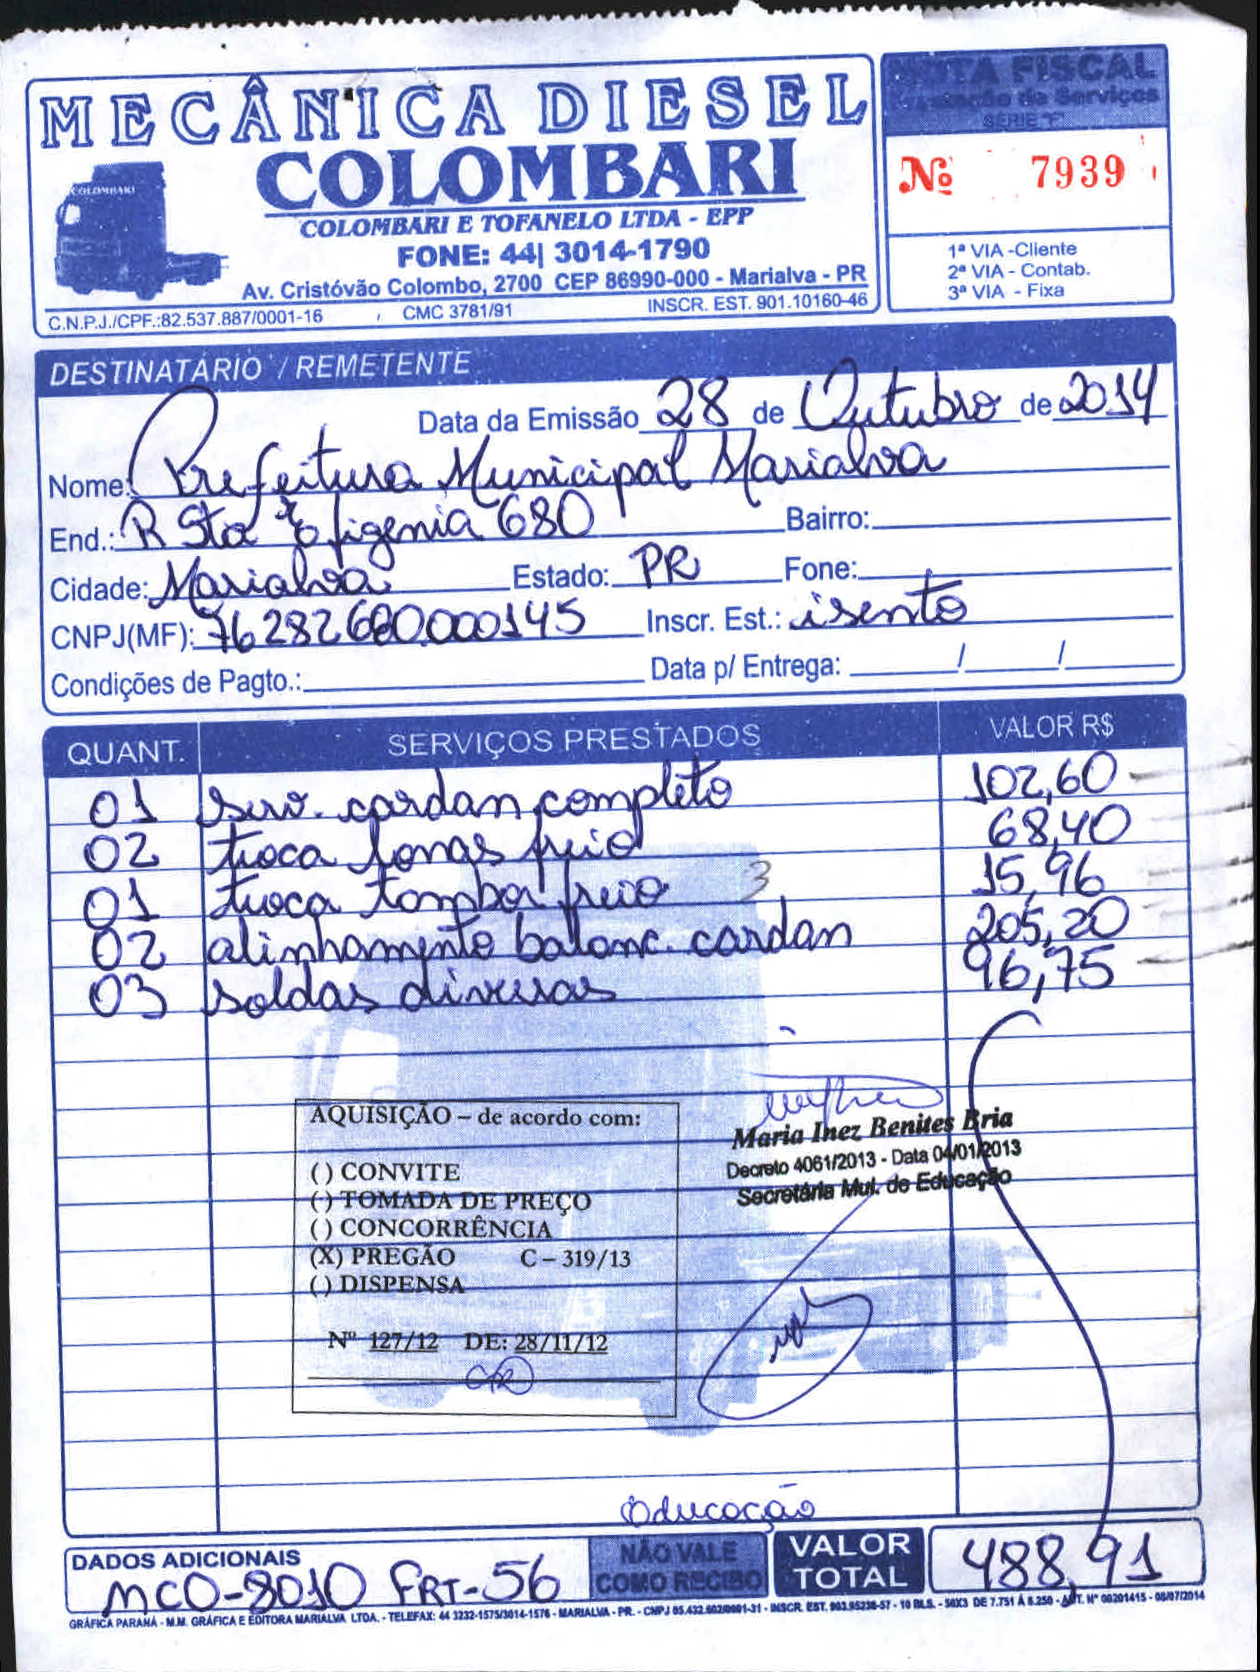 MECÂNICA DIESEL
COLOMBARI
COLOMBARI
COLOMBARI E TOFANELO LTDA - EPP
FONE: 44| 3014-1790
Av. Cristóvão Colombo, 2700 CEP 86990-000 - Marialva - PR
C.N.P.J./CPF.:82.537.887/0001-16 CMC 3781/91 INSCR. EST. 901.10160-46
NOTA FISCAL
Prestação de Serviços
SÉRIE "F"
Nº 7939
1ª VIA -Cliente
2ª VIA - Contab.
3ª VIA - Fixa
DESTINATÁRIO / REMETENTE
Data da Emissão 28 de Outubro de 2014
Nome: Prefeitura Municipal Marialva
End.: R Sta Efigenia 680 Bairro:
Cidade: Marialva Estado: PR Fone:
CNPJ(MF): 76282680.000145 Inscr. Est.: isento
Condições de Pagto.: Data p/ Entrega: / /
QUANT. SERVIÇOS PRESTADOS VALOR R$
01 serv. cardan completo 102,60
02 troca lonas freio 68,40
01 troca tambor freio 3 15,96
02 alinhamento balanc. cardan 205,20
03 soldas diversas 96,75
AQUISIÇÃO – de acordo com:
( ) CONVITE
( ) TOMADA DE PREÇO
( ) CONCORRÊNCIA
(X) PREGÃO C – 319/13
( ) DISPENSA
Nº 127/12 DE: 28/11/12
Maria Inez Benites Bria
Decreto 4061/2013 - Data 04/01/2013
Secretária Mul. de Educação
Educação
DADOS ADICIONAIS
MCO-8010 FRT-56
NÃO VALE
COMO RECIBO
VALOR
TOTAL
488,91
GRÁFICA PARANÁ - M.M. GRÁFICA E EDITORA MARIALVA LTDA. - TELEFAX: 44 3232-1575/3014-1576 - MARIALVA - PR. - CNPJ 05.432.602/0001-31 - INSCR. EST. 903.95236-57 - 10 BLS. - 50X3 DE 7.751 À 8.250 - AUT. Nº 00201415 - 08/07/2014